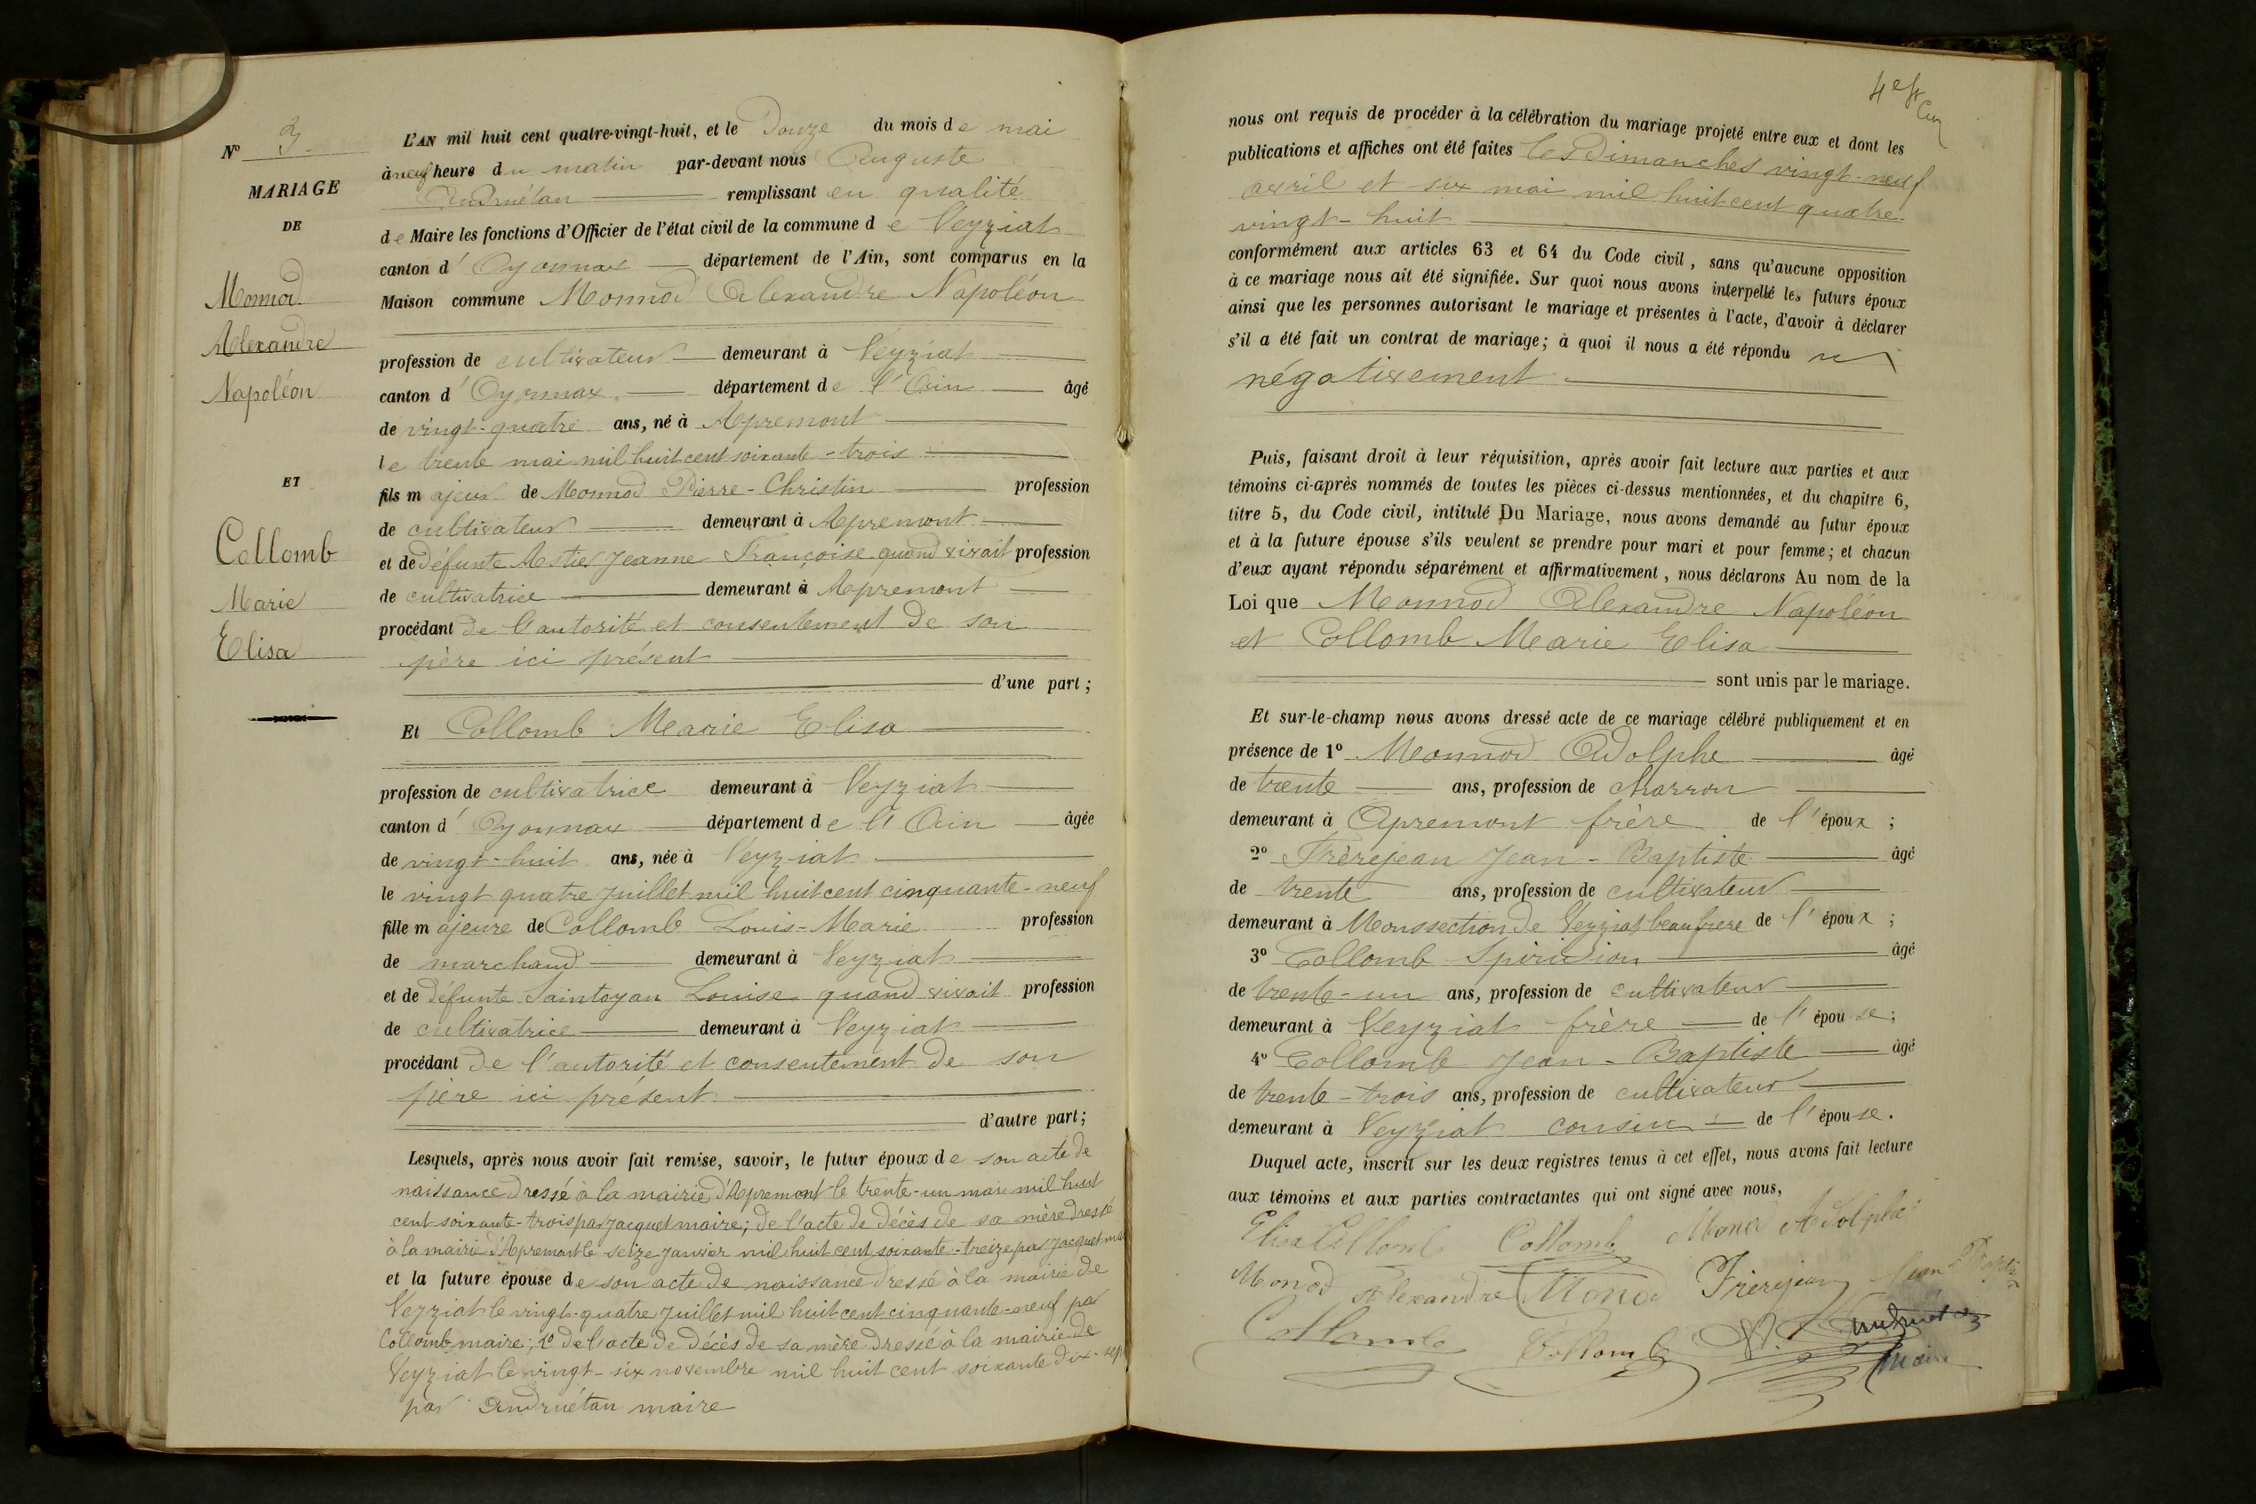 N° 3
MARIAGE
DE
Monnod
Alexandre
Napoléon
ET
Collomb
Marie
Elisa
L'AN mil huit cent quatre-vingt-huit, et le Douze du mois de mai
à neuf heure du matin par-devant nous Auguste
Andruétan remplissant en qualité
de Maire les fonctions d'Officier de l'état civil de la commune de Veyziat
canton d'Oyonnax département de l'Ain, sont comparus en la
Maison commune Monnod Alexandre Napoléon
profession de cultivateur demeurant à Veyziat
canton d'Oyonnax département de l'Ain âgé
de vingt-quatre ans, né à Apremont
le trente mai mil huit cent soixante-trois
fils majeur de Monnod Pierre-Christin profession
de cultivateur demeurant à Apremont
et de défunte Mestier Jeanne Françoise quand vivait profession
de cultivatrice demeurant à Apremont
procédant de l'autorité et consentement de son
père ici présent
d'une part;
Et Collomb Marie Elisa
profession de cultivatrice demeurant à Veyziat
canton d'Oyonnax département de l'Ain âgée
de vingt-huit ans, née à Veyziat
le vingt quatre juillet mil huit cent cinquante-neuf
fille majeure de Collomb Louis-Marie profession
de marchand demeurant à Veyziat
et de défunte Saintoyan Louise quand vivait profession
de cultivatrice demeurant à Veyziat
procédant de l'autorité et consentement de son
père ici présent
d'autre part;
Lesquels, après nous avoir fait remise, savoir, le futur époux de son acte de
naissance dressé à la mairie d'Apremont le trente-un mai mil huit
cent soixante-trois par Jacquet maire; de l'acte de décès de sa mère dressé
à la mairie d'Apremont le seize janvier mil huit cent soixante-treize par Jacquet mai
et la future épouse de son acte de naissance dressé à la mairie de
Veyziat le vingt-quatre juillet mil huit cent cinquante-neuf par
Collomb maire; 2° de l'acte de décès de sa mère dressé à la mairie de
Veyziat le vingt-six novembre mil huit cent soixante dix-sept
par Andruétan maire
4e
nous ont requis de procéder à la célébration du mariage projeté entre eux et dont les
publications et affiches ont été faites les dimanches vingt-neuf
avril et six mai mil huit cent quatre
vingt-huit
conformément aux articles 63 et 64 du Code civil, sans qu'aucune opposition
à ce mariage nous ait été signifiée. Sur quoi nous avons interpellé les futurs époux
ainsi que les personnes autorisant le mariage et présentes à l'acte, d'avoir à déclarer
s'il a été fait un contrat de mariage; à quoi il nous a été répondu
négativement
Puis, faisant droit à leur réquisition, après avoir fait lecture aux parties et aux
témoins ci-après nommés de toutes les pièces ci-dessus mentionnées, et du chapitre 6,
titre 5, du Code civil, intitulé Du Mariage, nous avons demandé au futur époux
et à la future épouse s'ils veulent se prendre pour mari et pour femme; et chacun
d'eux ayant répondu séparément et affirmativement, nous déclarons Au nom de la
Loi que Monnod Alexandre Napoléon
et Collomb Marie Elisa
sont unis par le mariage.
Et sur-le-champ nous avons dressé acte de ce mariage célébré publiquement et en
présence de 1° Monnod Adolphe âgé
de trente ans, profession de charron
demeurant à Apremont frère de l'époux;
2° Frèrejean Jean-Baptiste âgé
de trente ans, profession de cultivateur
demeurant à Mons section de Veyziat beau frère de l'époux;
3° Collomb Spiridion âgé
de trente-un ans, profession de cultivateur
demeurant à Veyziat frère de l'épouse;
4° Collomb Jean-Baptiste âgé
de trente-trois ans, profession de cultivateur
demeurant à Veyziat cousin de l'épouse.
Duquel acte, inscrit sur les deux registres tenus à cet effet, nous avons fait lecture
aux témoins et aux parties contractantes qui ont signé avec nous,
Elisa Collomb Collomb Monod Adolphe
Monod Alexandre Monod Frerejean Jean Baptiste
Collomb Collomb Andruétan
Maire